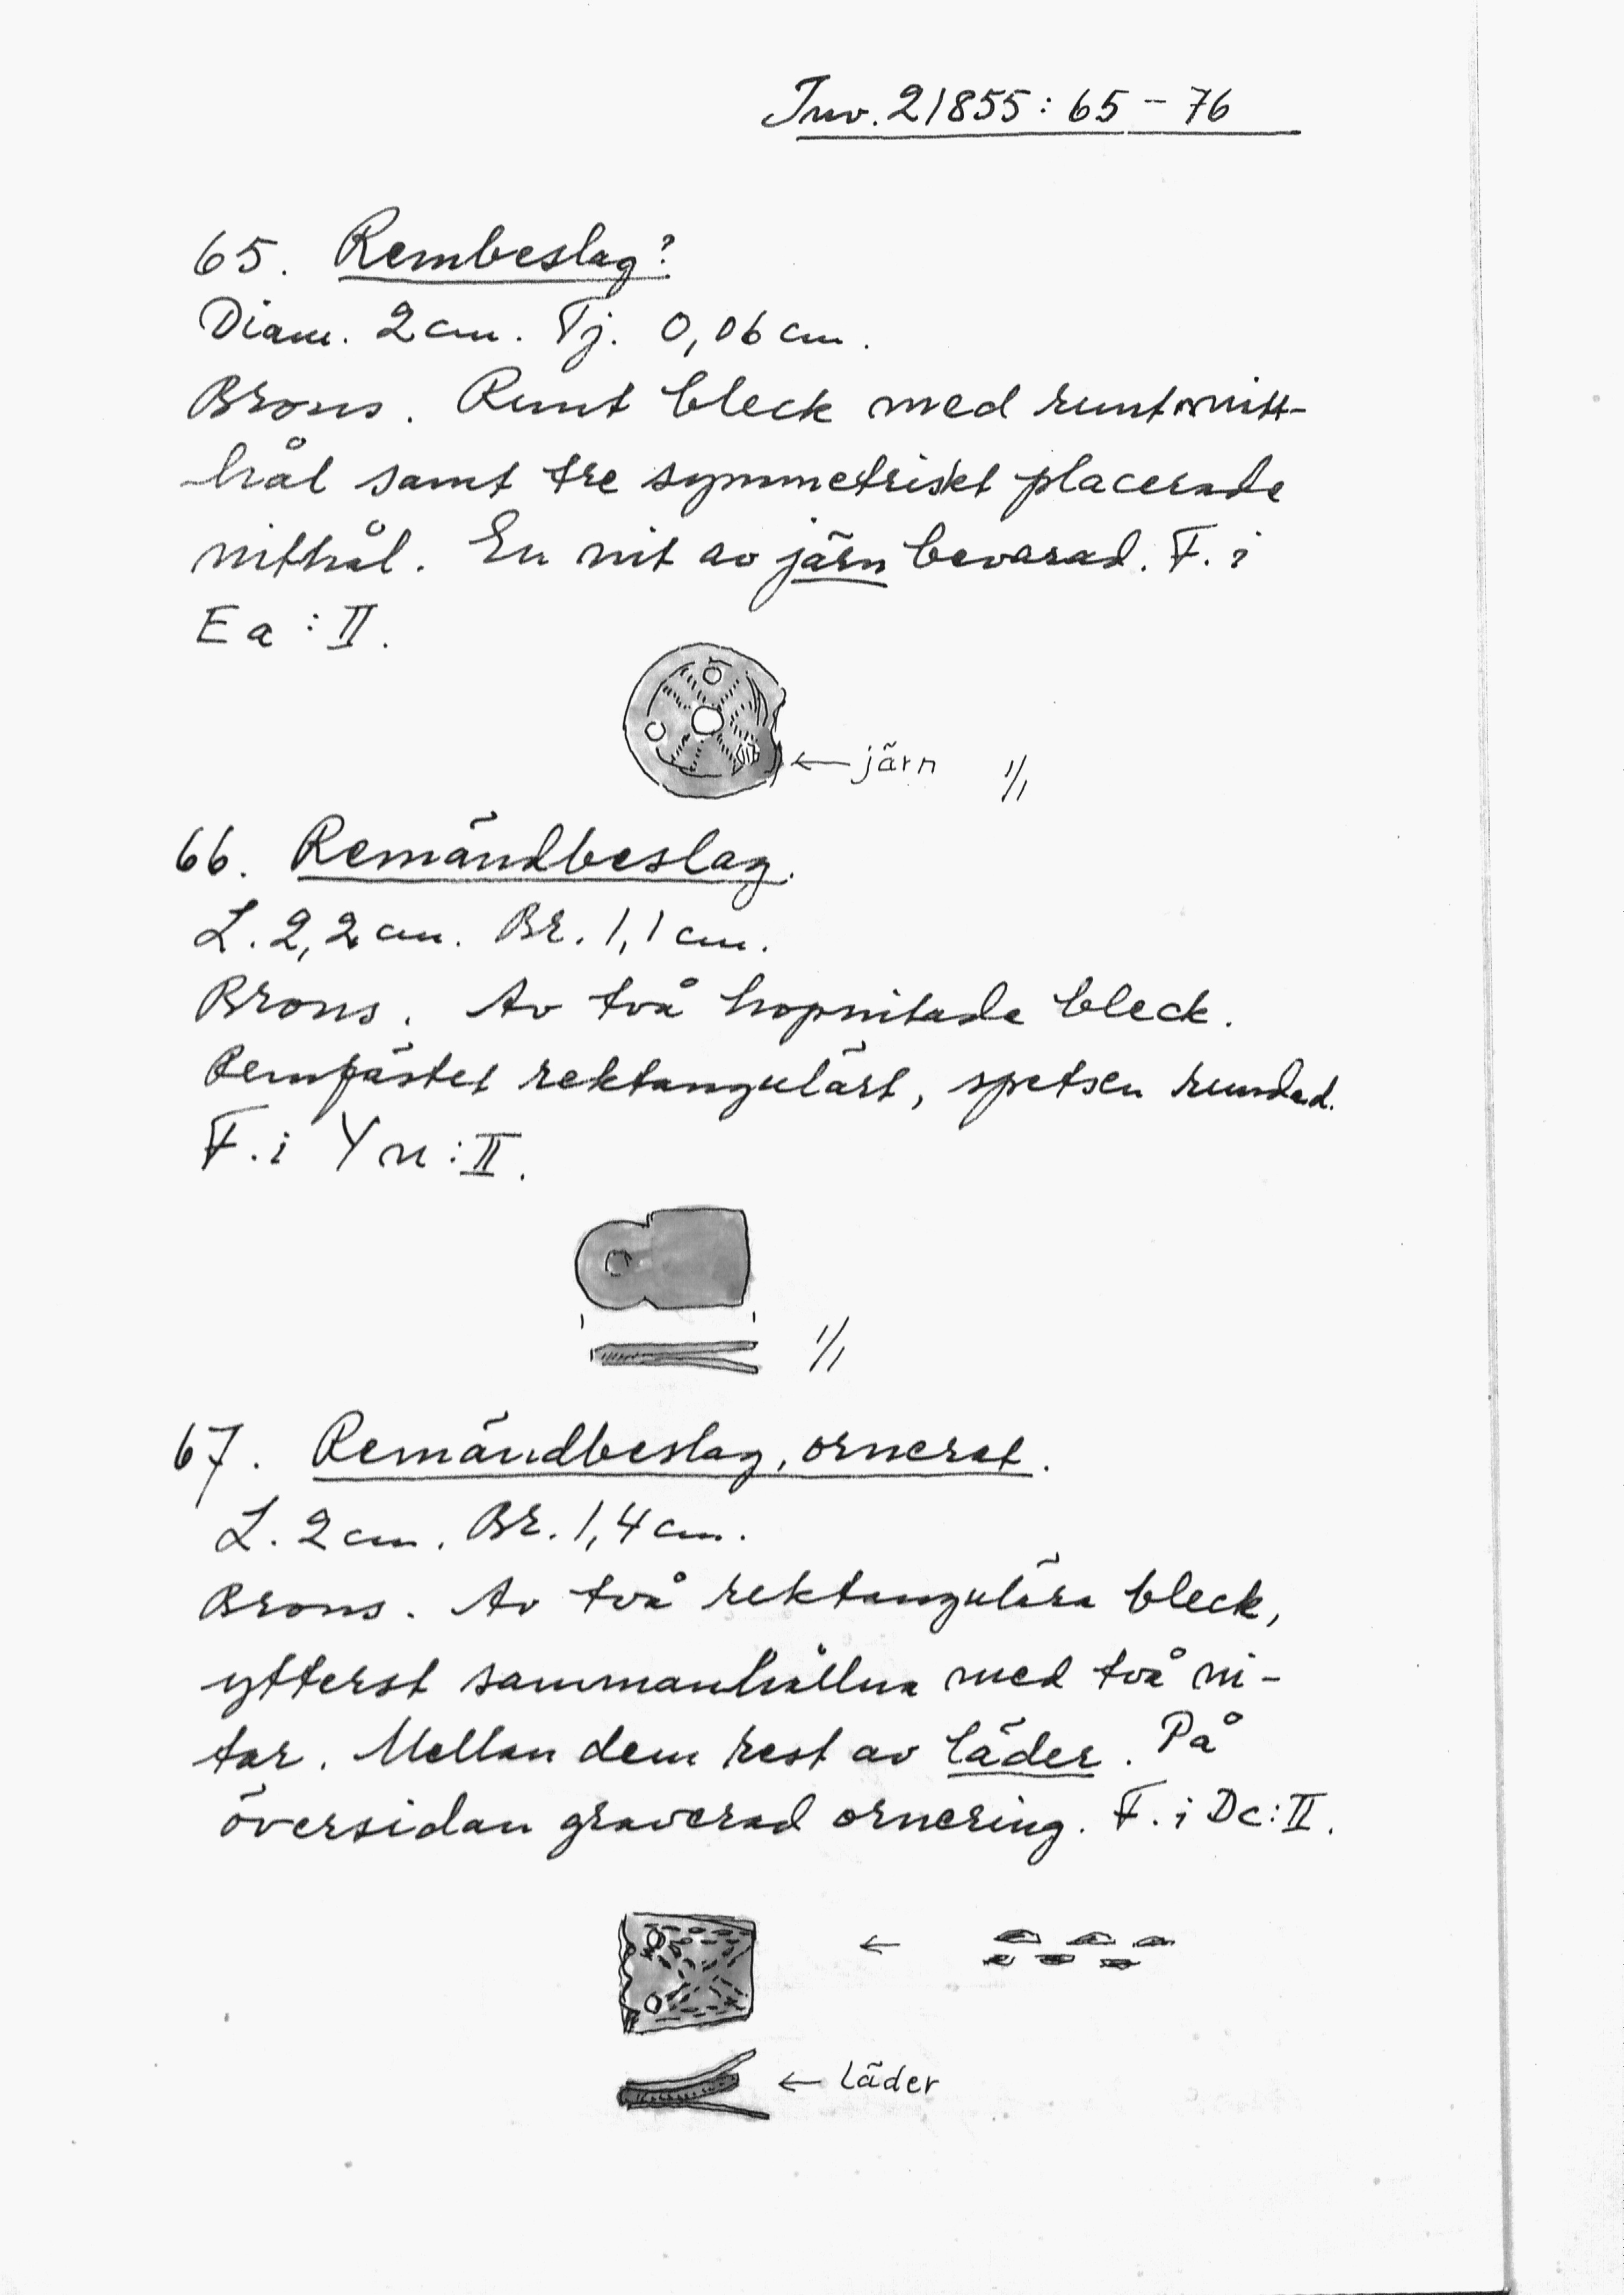 Inv. 21855: 65 – 76
65. Rembeslag?
Diam. 2 cm. Tj. 0,06 cm.
Brons. Runt bleck med runt mitt-
hål samt tre symmetriskt placerade
nithål. En nit av järn bevarad. F. i
Ea : II.
← järn 1/1
66. Remändbeslag.
L. 2,2 cm. Br. 1,1 cm.
Brons. Av två hopnitade bleck.
Remfästet rektangulärt, spetsen rundad.
F. i Yn : II.
1/1
67. Remändbeslag, ornerat.
L. 2 cm. Br. 1,4 cm.
Brons. Av två rektangulära bleck,
ytterst sammanhållna med två ni-
tar. Mellan dem rest av läder. På
översidan graverad ornering. F. i Dc: II.
←
← läder